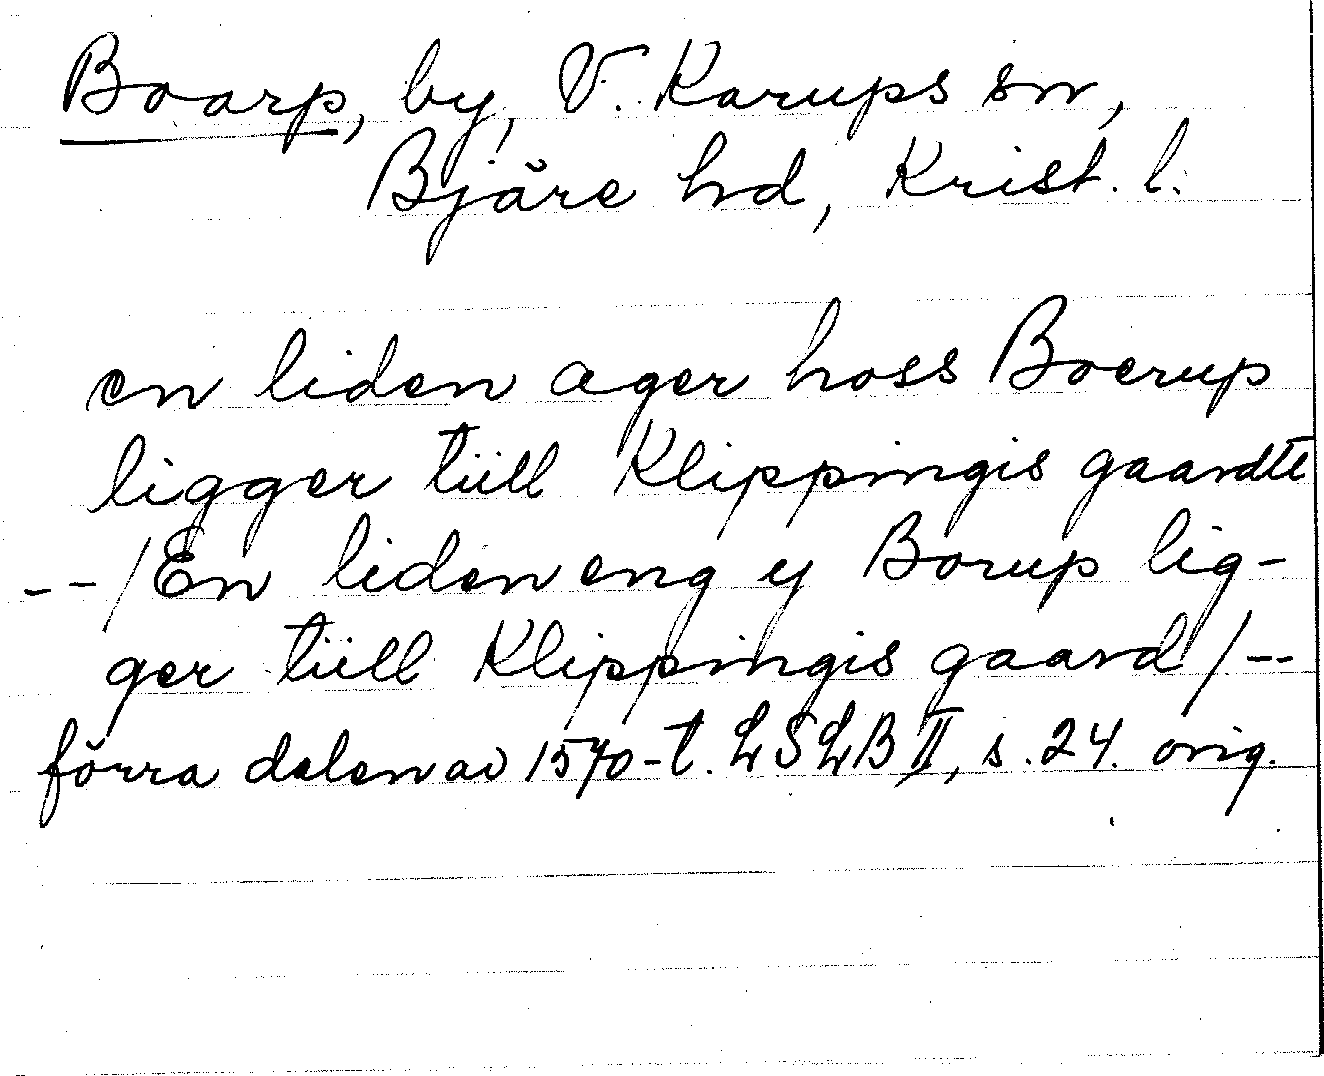 Boarp, by, V. Karups sn,
Bjäre hd, Krist. l.
en liden ager hoss Boerup
ligger tiill Klippingis gaardtt
--/En liden eng y Borup lig-
ger tiill Klippingis gaard/--
förra delen av 1570-t. LSLB II, s. 24. orig.